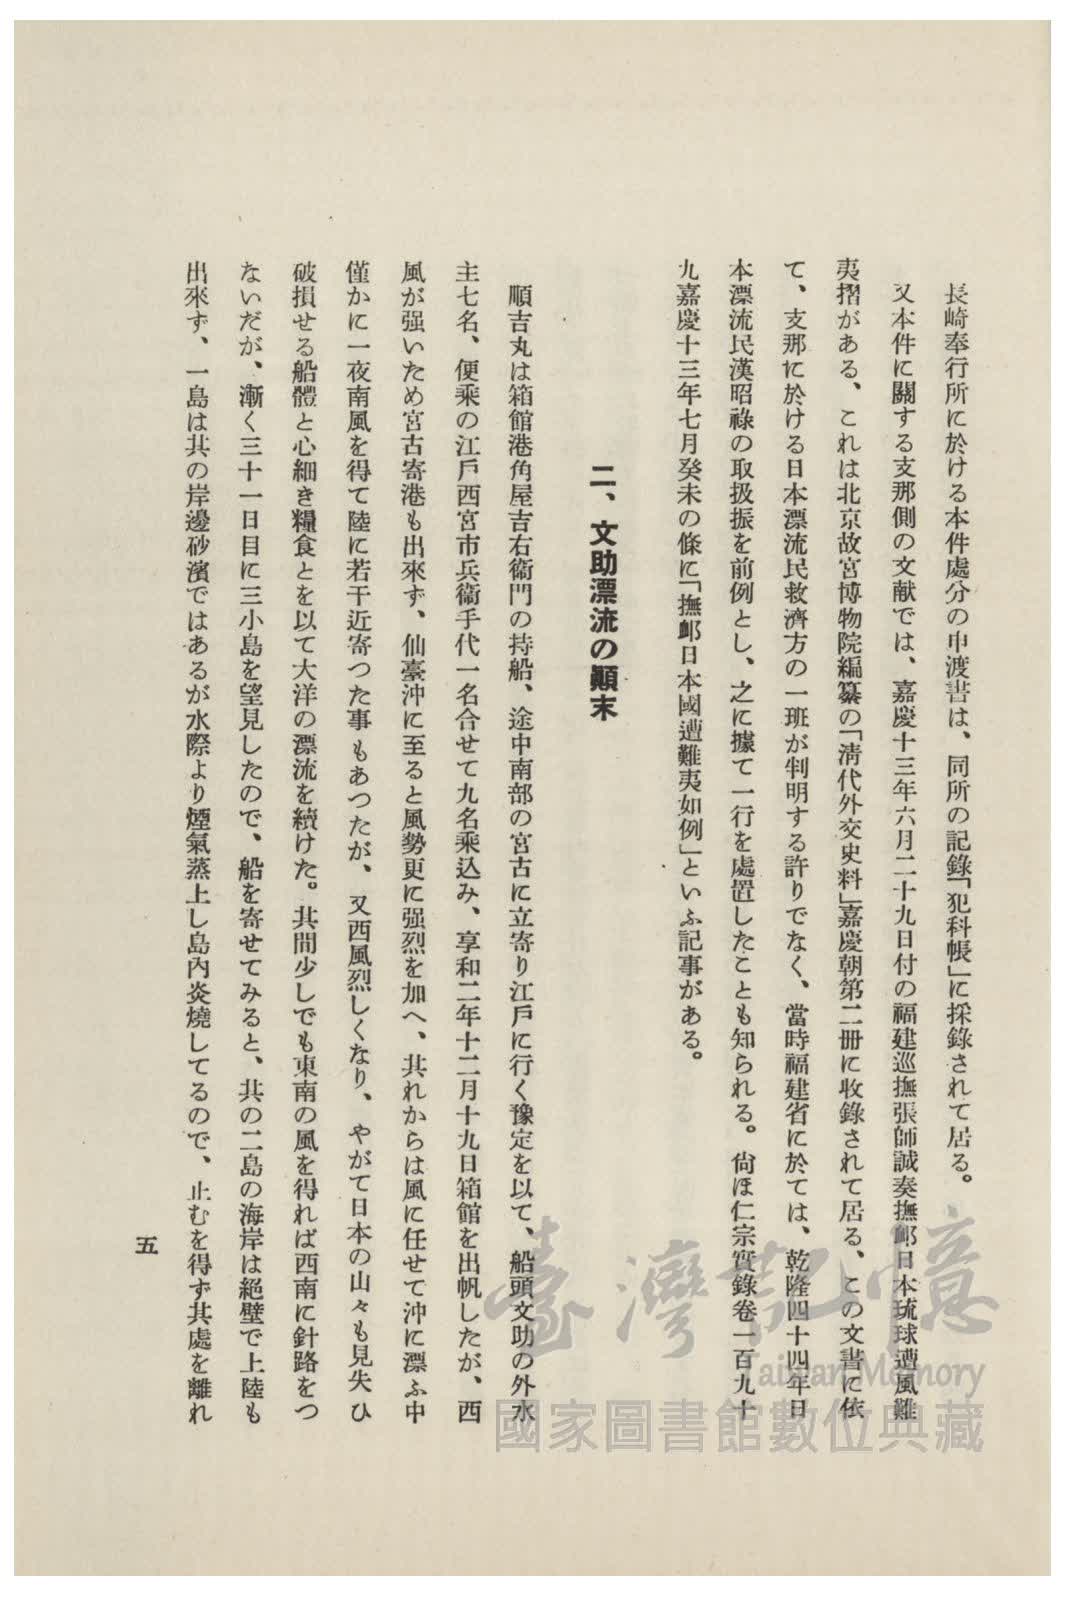 長崎奉行所に於ける本件處分の申渡書は、同所の記錄「犯科帳」に採錄されて居る。
又本件に關する支那側の文献では、嘉慶十三年六月二十九日付の福建巡撫張師誠奏撫卹日本琉球遭風難
夷摺がある、これは北京故宮博物院編纂の「淸代外交史料」嘉慶朝第二冊に收錄されて居る、この文書に依
て、支那に於ける日本漂流民救濟方の一班が判明する許りでなく、當時福建省に於ては、乾隆四十四年日
本漂流民漢昭祿の取扱振を前例とし、之に據て一行を處置したことも知られる。尙ほ仁宗實錄卷一百九十
九嘉慶十三年七月癸未の條に「撫卹日本國遭難夷如例」といふ記事がある。
二、文助漂流の顚末
順吉丸は箱館港角屋吉右衞門の持船、途中南部の宮古に立寄り江戶に行く豫定を以て、船頭文助の外水
主七名、便乘の江戶西宮市兵衞手代一名合せて九名乘込み、享和二年十二月十九日箱館を出帆したが、西
風が强いため宮古寄港も出來ず、仙臺沖に至ると風勢更に强烈を加へ、其れからは風に任せて沖に漂ふ中
僅かに一夜南風を得て陸に若干近寄つた事もあつたが、又西風烈しくなり、やがて日本の山々も見失ひ
破損せる船體と心細き糧食とを以て大洋の漂流を續けた。其間少しでも東南の風を得れば西南に針路をつ
ないだが、漸く三十一日目に三小島を望見したので、船を寄せてみると、其の二島の海岸は絕壁で上陸も
出來ず、一島は其の岸邊砂濱ではあるが水際より煙氣蒸上し島內炎燒してるので、止むを得ず其處を離れ
五
臺灣記憶
Taiwan Memory
國家圖書館數位典藏